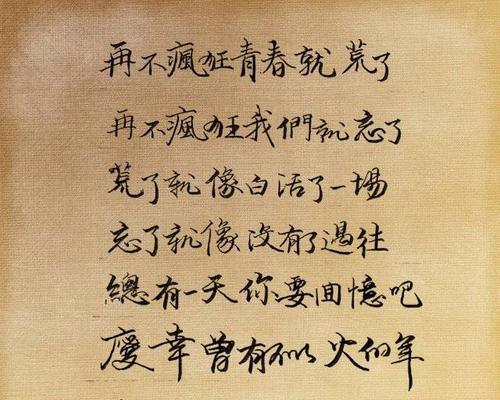 再不瘋狂青春就荒了
再不瘋狂我們就忘了
荒了就像白活了一場
忘了就像沒有了過往
總有一天你要回憶吧
慶幸曾有似火的年